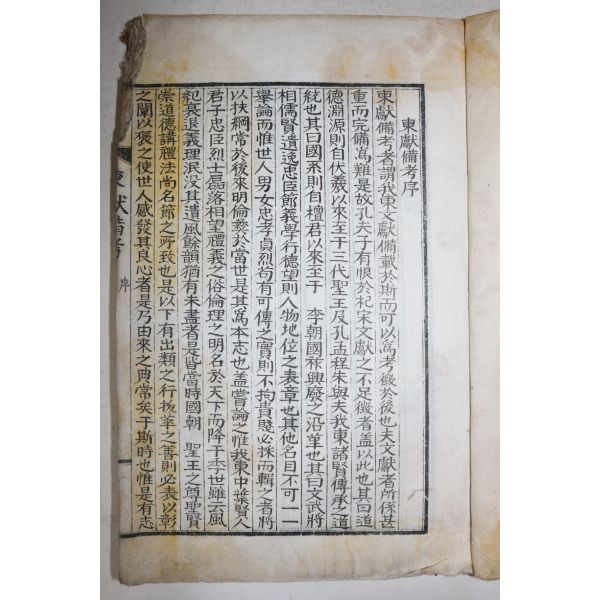 東獻備考序
東獻備考者謂我東文獻備載於斯而可以爲考徵於後也夫文獻者所係甚
重而完備爲難是故孔夫子有恨於杞宋文獻之不足徵者盖以此也其曰道
德淵源則自伏羲以來至于三代聖王及孔孟程朱與夫我東諸賢傳承之道
統也其曰國系則自檀君以來至于 李朝國祚興廢之沿革也其曰文武將
相儒賢遺逸忠臣節義學行德望則人物地位之表章也其他名目不可一一
擧論而惟世人男女忠孝貞烈苟有可傳之實則不拘貴賤必採而輯之者將
以扶綱常於後來明倫彜於當世是其爲本志也盖嘗論之惟我東中葉賢人
君子忠臣烈士磊落相望禮義之俗倫理之明名於天下而降于李世雖云風
紀衰退義理泯没其遺風餘韻猶有未盡者是皆當時國朝 聖王之尊聖賢
崇道德講禮法尚名節之所致也是以下有出類之行拔萃之善則必表以彰
之闡以褒之使世人感發其良心者是乃由來之典常矣于斯時也惟是有志
東獻備考 序